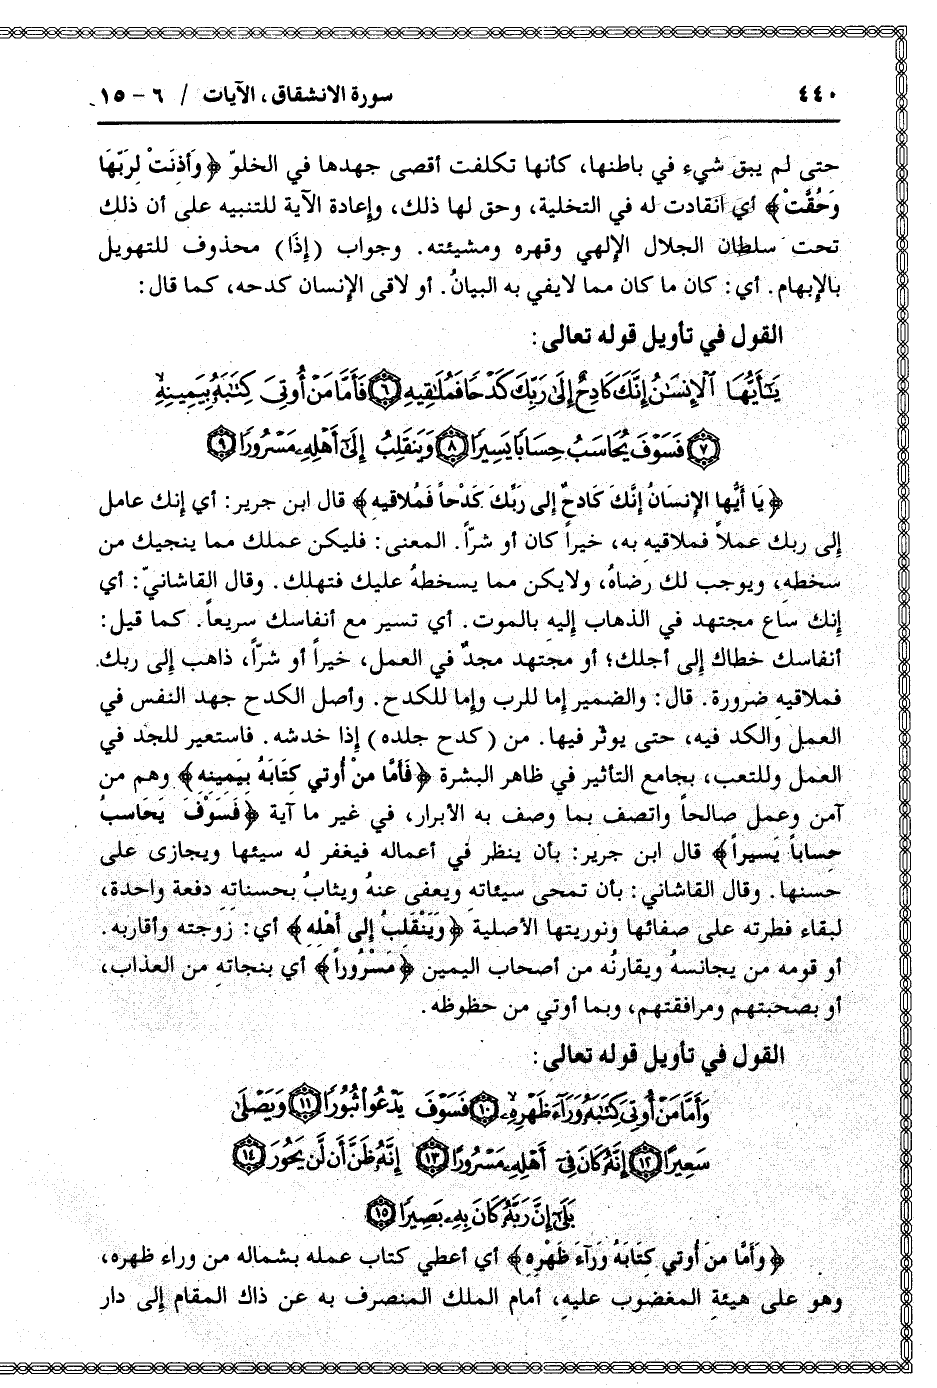 ٤٤٠ سورة الانشقاق، الآيات / ٦ - ١٥
حتى لم يبق شيء في باطنها، كأنها تكلفت أقصى جهدها في الخلوّ ﴿وَأَذِنَتْ لِرَبِّهَا
وَحُقَّتْ﴾ أي انقادت له في التخلية، وحق لها ذلك، وإعادة الآية للتنبيه على أن ذلك
تحت سلطان الجلال الإلهي وقهره ومشيئته. وجواب (إذَا) محذوف للتهويل
بالإبهام. أي: كان ما كان مما لايفي به البيانُ. أو لاقى الإنسان كدحه، كما قال:
القول في تأويل قوله تعالى:
يَٰٓأَيُّهَا ٱلْإِنسَٰنُ إِنَّكَ كَادِحٌ إِلَىٰ رَبِّكَ كَدْحًا فَمُلَٰقِيهِ ﴿٦﴾ فَأَمَّا مَنْ أُوتِىَ كِتَٰبَهُۥ بِيَمِينِهِۦ
﴿٧﴾ فَسَوْفَ يُحَاسَبُ حِسَابًا يَسِيرًا ﴿٨﴾ وَيَنقَلِبُ إِلَىٰٓ أَهْلِهِۦ مَسْرُورًا ﴿٩﴾
﴿يَا أَيُّها الإنسَانُ إنَّكَ كَادِحٌ إلى رَبِّكَ كَدْحاً فَمُلاقيه﴾ قال ابن جرير: أي إنك عامل
إلى ربك عملاً فملاقيه به، خيراً كان أو شرّاً. المعنى: فليكن عملك مما ينجيك من
سخطهِ، ويوجب لك رضاهُ، ولايكن مما يسخطهُ عليك فتهلك. وقال القاشانيّ: أي
إنك ساع مجتهد في الذهاب إليه بالموت. أي تسير مع أنفاسك سريعاً. كما قيل:
أنفاسك خطاك إلى أجلك؛ أو مجتهد مجدٌ في العمل، خيراً أو شرّاً، ذاهب إلى ربك
فملاقيه ضرورة. قال: والضمير إما للرب وإما للكدح. وأصل الكدح جهد النفس في
العمل والكد فيه، حتى يوثّر فيها. من (كدح جلده) إذا خدشه. فاستعير للجد في
العمل وللتعب، بجامع التأثير في ظاهر البشرة ﴿فَأمَّا منْ أُوتي كتَابَهُ بيَمينه﴾ وهم من
آمن وعمل صالحاً واتصف بما وصف به الأبرار، في غير ما آية ﴿فَسَوْفَ يَحَاسبُ
حساباً يَسيراً﴾ قال ابن جرير: بأن ينظر في أعماله فيغفر له سيئها ويجازى على
حسنها. وقال القاشاني: بأن تمحى سيئاته ويعفى عنهُ ويثابُ بحسناته دفعة واحدة،
لبقاء فطرته على صفائها ونوريتها الأصلية ﴿وَيَنْقَلبُ إلى أَهْله﴾ أي: زوجته وأقاربه.
أو قومه من يجانسهُ ويقارنُه من أصحاب اليمين ﴿مَسْرُوراً﴾ أي بنجاته من العذاب،
أو بصحبتهم ومرافقتهم، وبما أوتي من حظوظه.
القول في تأويل قوله تعالى:
وَأَمَّا مَنْ أُوتِىَ كِتَٰبَهُۥ وَرَآءَ ظَهْرِهِۦ ﴿١٠﴾ فَسَوْفَ يَدْعُوا۟ ثُبُورًا ﴿١١﴾ وَيَصْلَىٰ
سَعِيرًا ﴿١٢﴾ إِنَّهُۥ كَانَ فِىٓ أَهْلِهِۦ مَسْرُورًا ﴿١٣﴾ إِنَّهُۥ ظَنَّ أَن لَّن يَحُورَ ﴿١٤﴾
بَلَىٰٓ إِنَّ رَبَّهُۥ كَانَ بِهِۦ بَصِيرًا ﴿١٥﴾
﴿وَأَمَّا منَ أُوتي كتَابَهُ وَرَآءَ ظَهْره﴾ أي أعطي كتاب عمله بشماله من وراء ظهره،
وهو على هيئة المغضوب عليه، أمام الملك المنصرف به عن ذاك المقام إلى دار